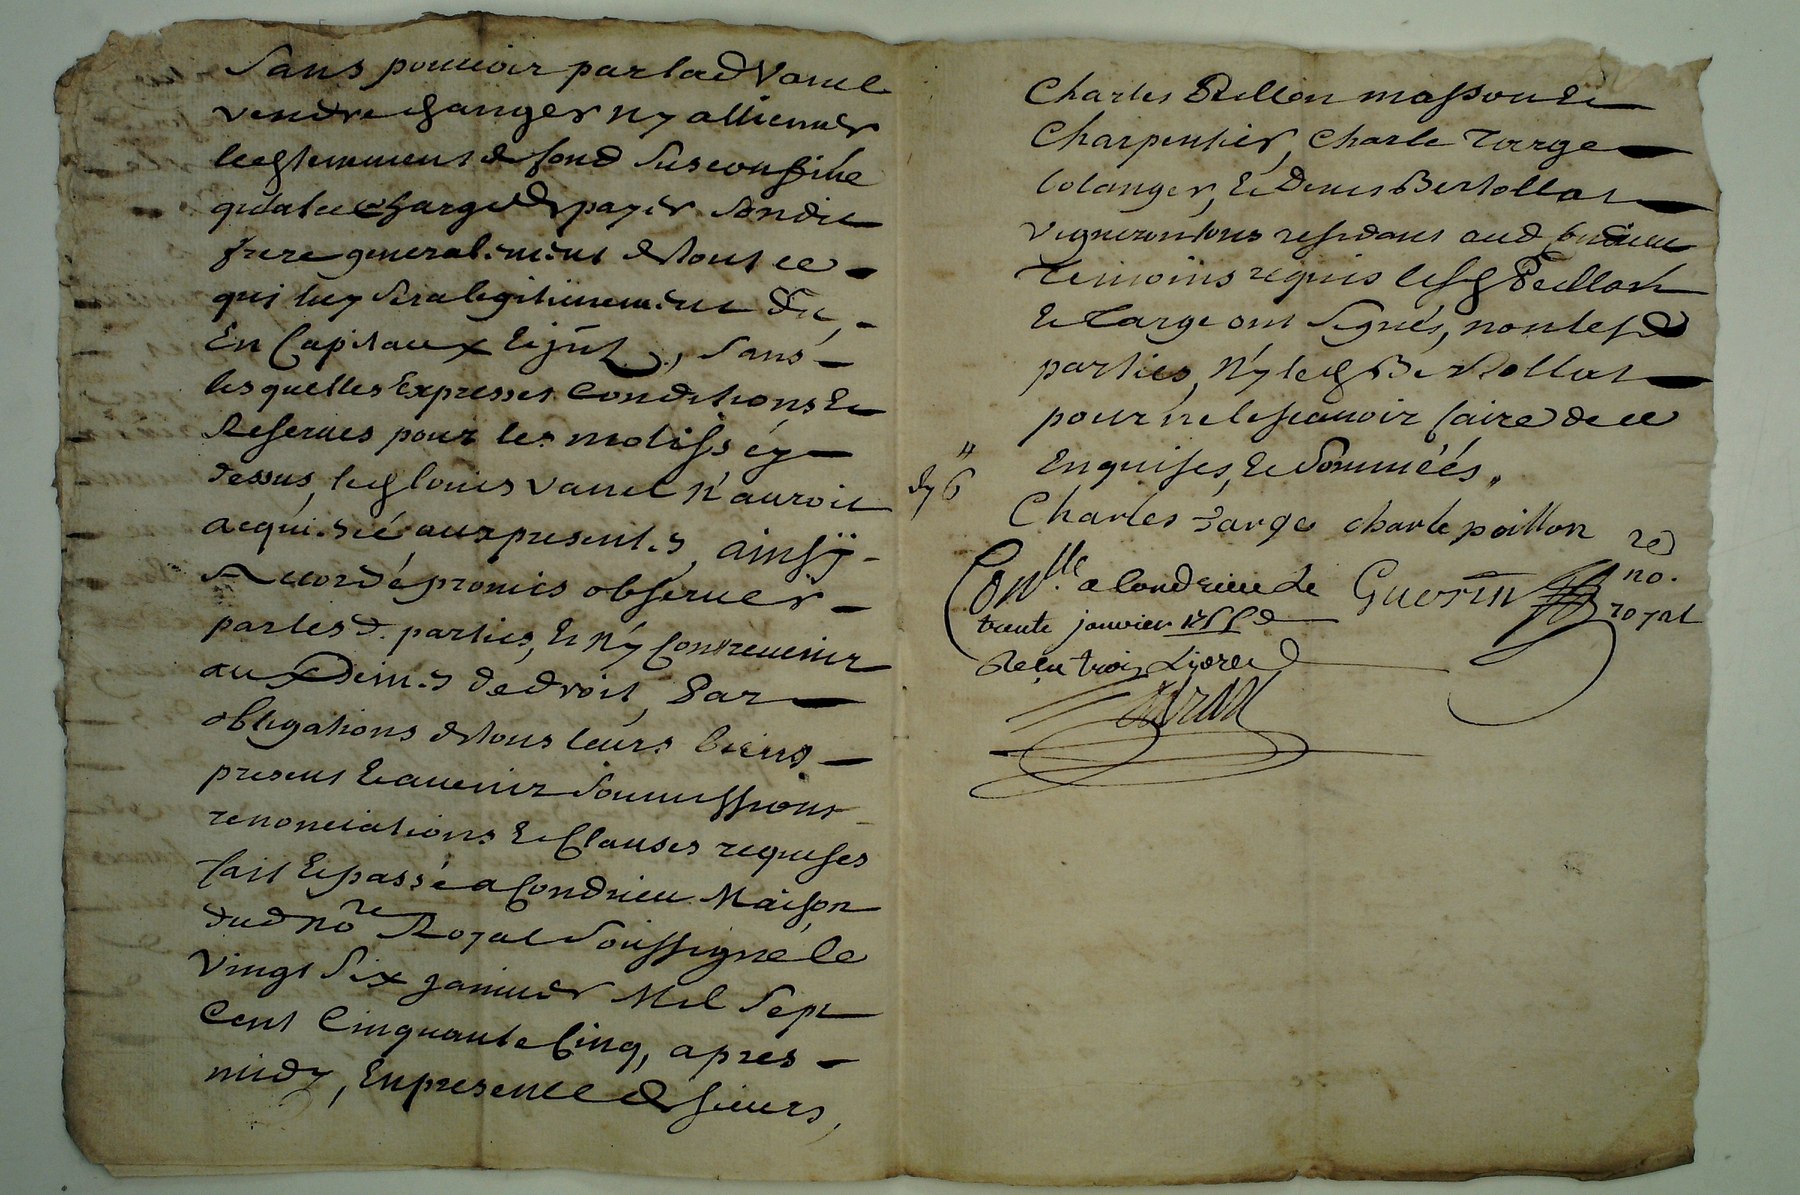 Sans pouvoir par lad Vanel
vendre changer ny allienner
led tennement de fond Sus confiné
qu'a la charge de payer Sondit
frere generalement de tout ce
qui luy Sera legitimement du,
En Capitaux Et jnt, Sans
lesquelles Expresses Conditions Et
Reserves pour les motifs cy
dessus, led louis Vanel n'auroit
acquiessé aux presentes, ainsÿ
Accordé promis observer
parties d. parties, Et Ny Contrevenir
aux de droit, Par
obligations de tous leurs biens
presens Et avenir Soumissions
renonciations Et Clauses requises
fait Et passé a Condrieu Maison
dud no.re Royal Soussigné le
Vingt Six janvier Mil Sept
Cent Cinquante Cinq, apres
midy, En presence de sieurs,
Charles masson Et
Charpentier, Charle Targe
bolanger, Et Denis Bertollat
Vigneron tous residans aud Condrieu
Temoins requis lesd Peillon
Et Targe ont Signés, non lesd
parties, Ny led Bertollat
pour ne le scavoir faire de ce
Enquises, Et Sommées,
Charles Targe charle poillon
Con.lle a Condrieu Le Guerin no.
trente janvier 1755 royal
Recu trois Livres